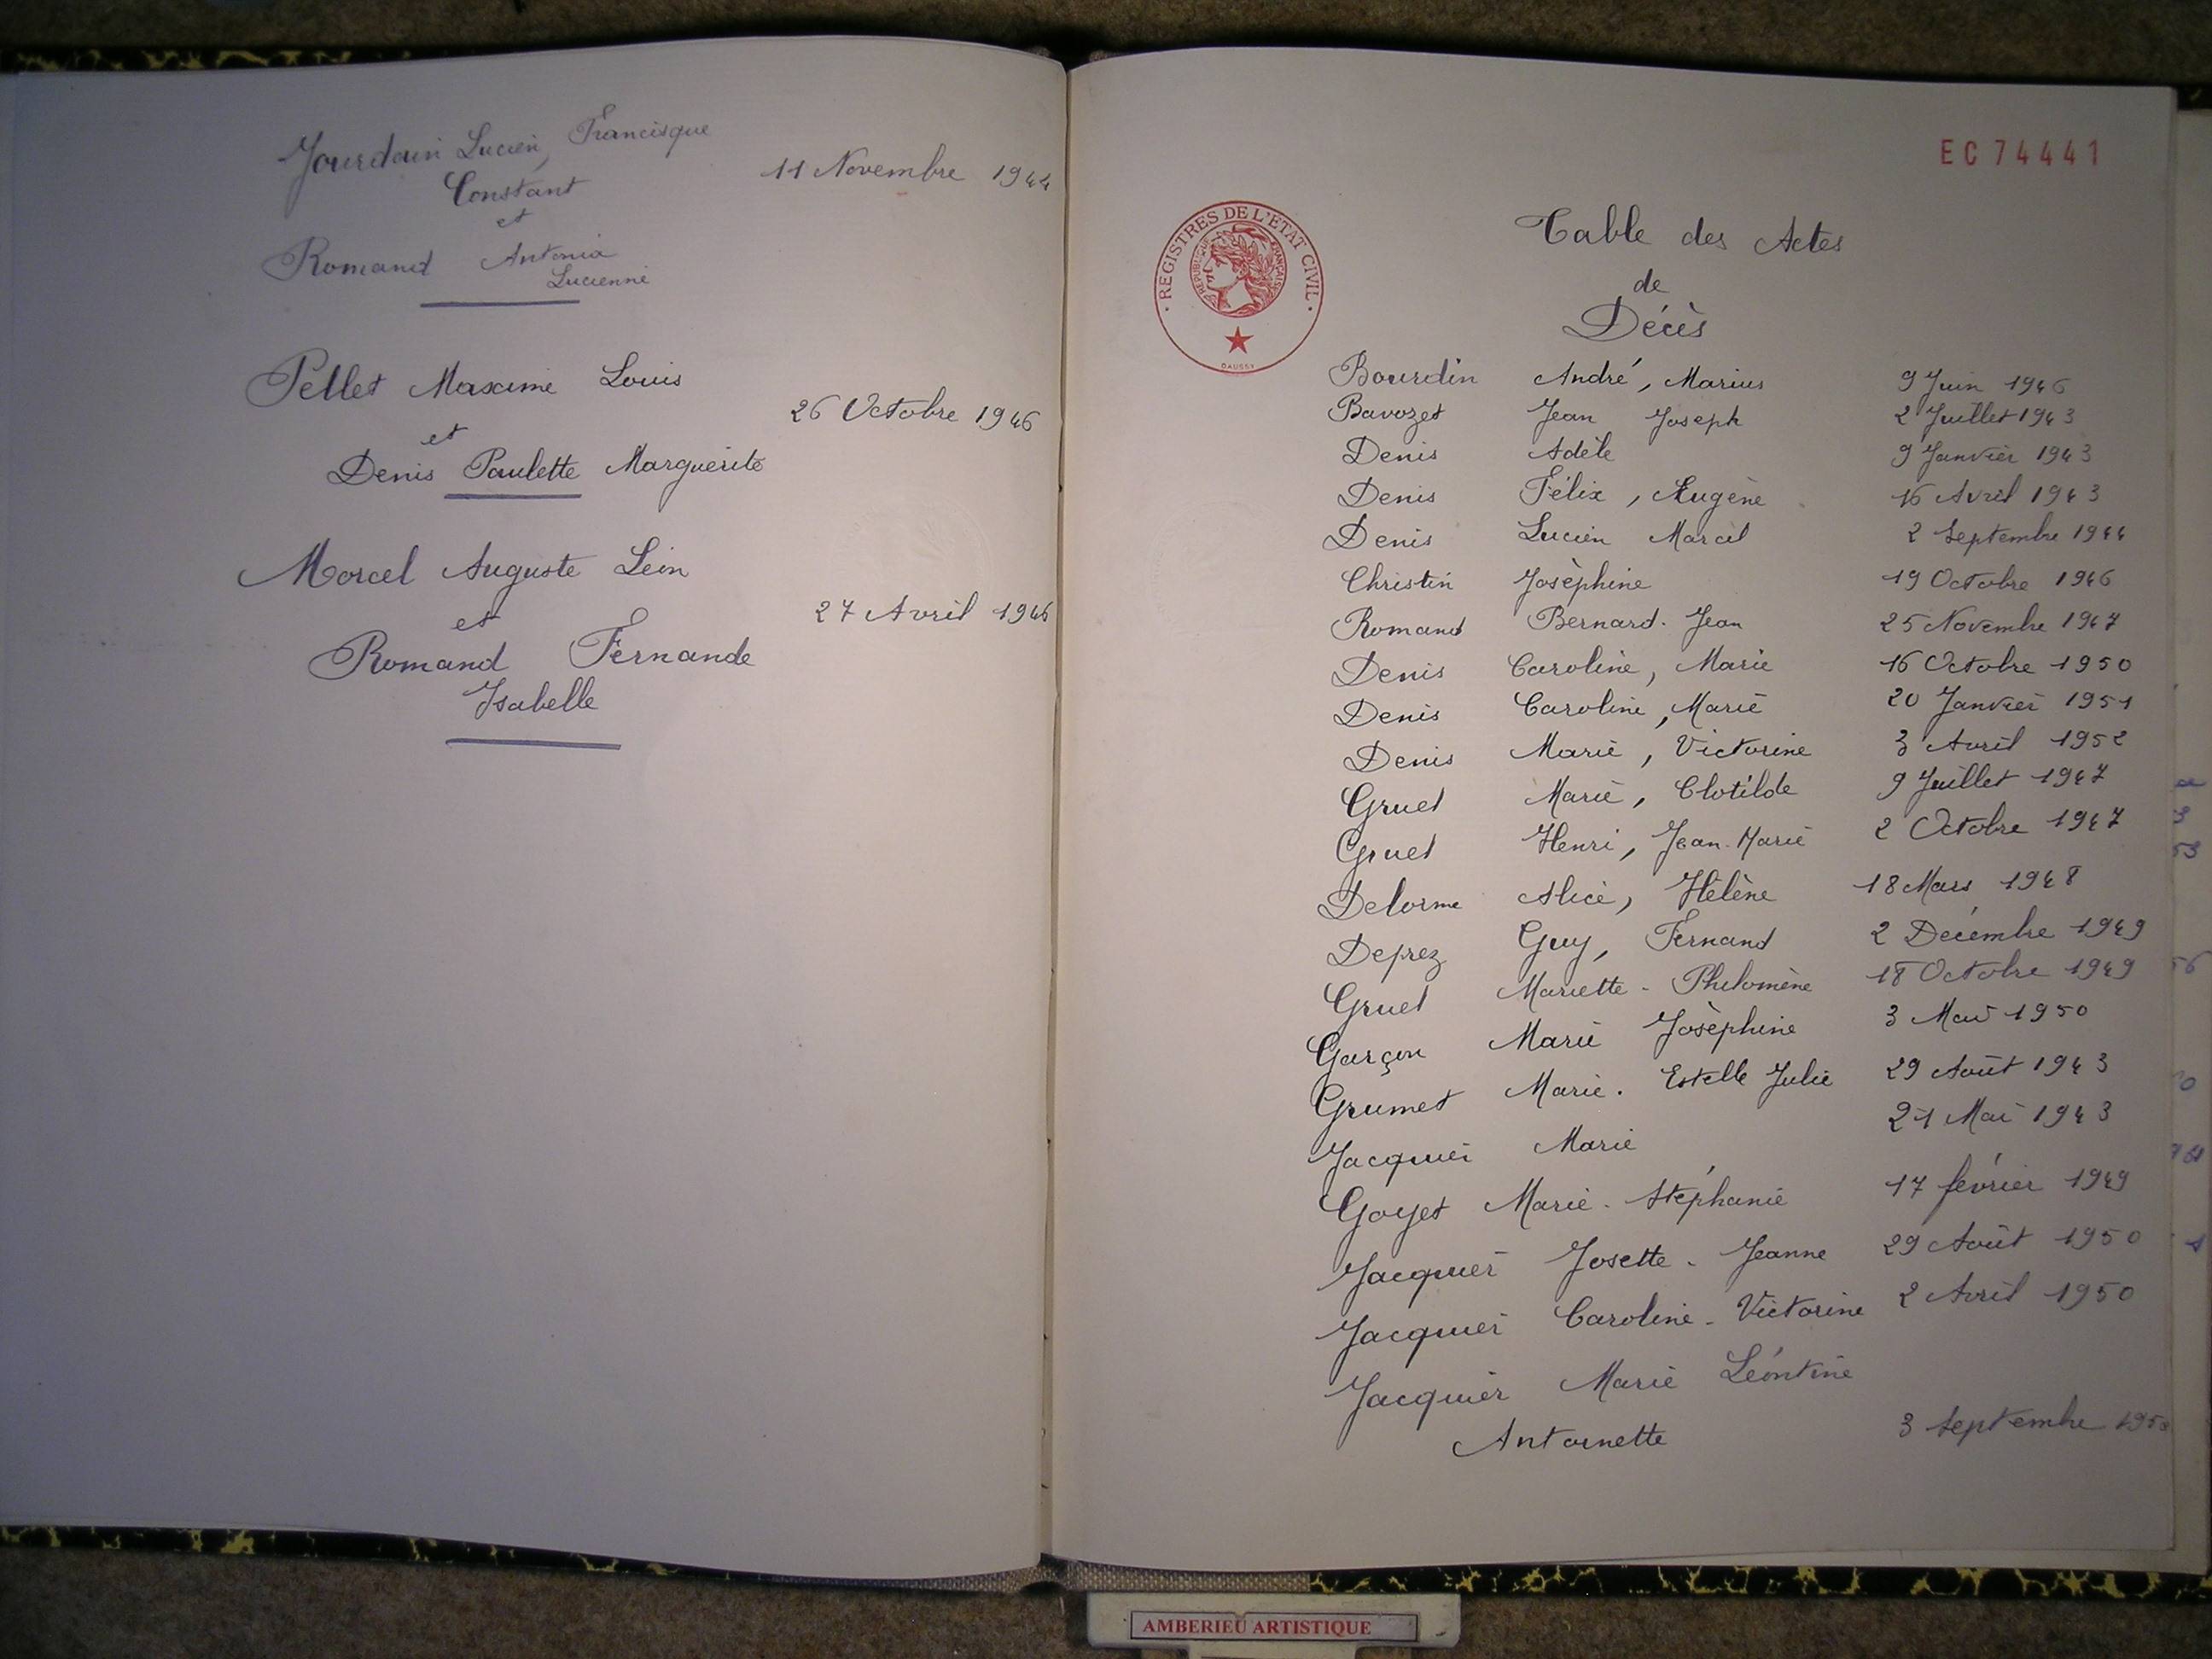 Jourdain Lucien, Francisque
Constant
11 Novembre 1944
et
Romand Antonia
Lucienne
Pellet Maxime Louis
26 Octobre 1946
et
Denis Paulette Marguerite
Morcel Auguste Léon
27 Avril 1946
et
Romand Fernande
Isabelle
EC 74441
REGISTRES DE L'ETAT CIVIL
REPUBLIQUE FRANÇAISE
DAUSSY
Table des Actes
de
Décès
Bourdin André, Marius 9 Juin 1946
Bavozet Jean Joseph 2 Juillet 1943
Denis Adèle 9 Janvier 1943
Denis Félix, Eugène 16 Avril 1943
Denis Lucien Marcel 2 Septembre 1944
Christin Joséphine 19 Octobre 1946
Romand Bernard-Jean 25 Novembre 1947
Denis Caroline, Marie 16 Octobre 1950
Denis Caroline, Marie 20 Janvier 1951
Denis Marie, Victorine 3 Avril 1952
Gruel Marie, Clotilde 9 Juillet 1947
Gruel Henri, Jean-Marie 2 Octobre 1947
Delorme Alice, Hélène 18 Mars 1948
Deprez Guy, Fernand 2 Décembre 1949
Gruel Mariette - Philomène 18 Octobre 1949
Garçon Marie Joséphine 3 Mai 1950
Grumet Marie. Estelle Julie 29 Août 1943
Jacquier Marie 21 Mai 1943
Goyet Marie - Stéphanie 17 février 1949
Jacquier Josette - Jeanne 29 Août 1950
Jacquier Caroline - Victorine 2 Avril 1950
Jacquier Marie Léontine
Antoinette 3 Septembre
AMBERIEU ARTISTIQUE